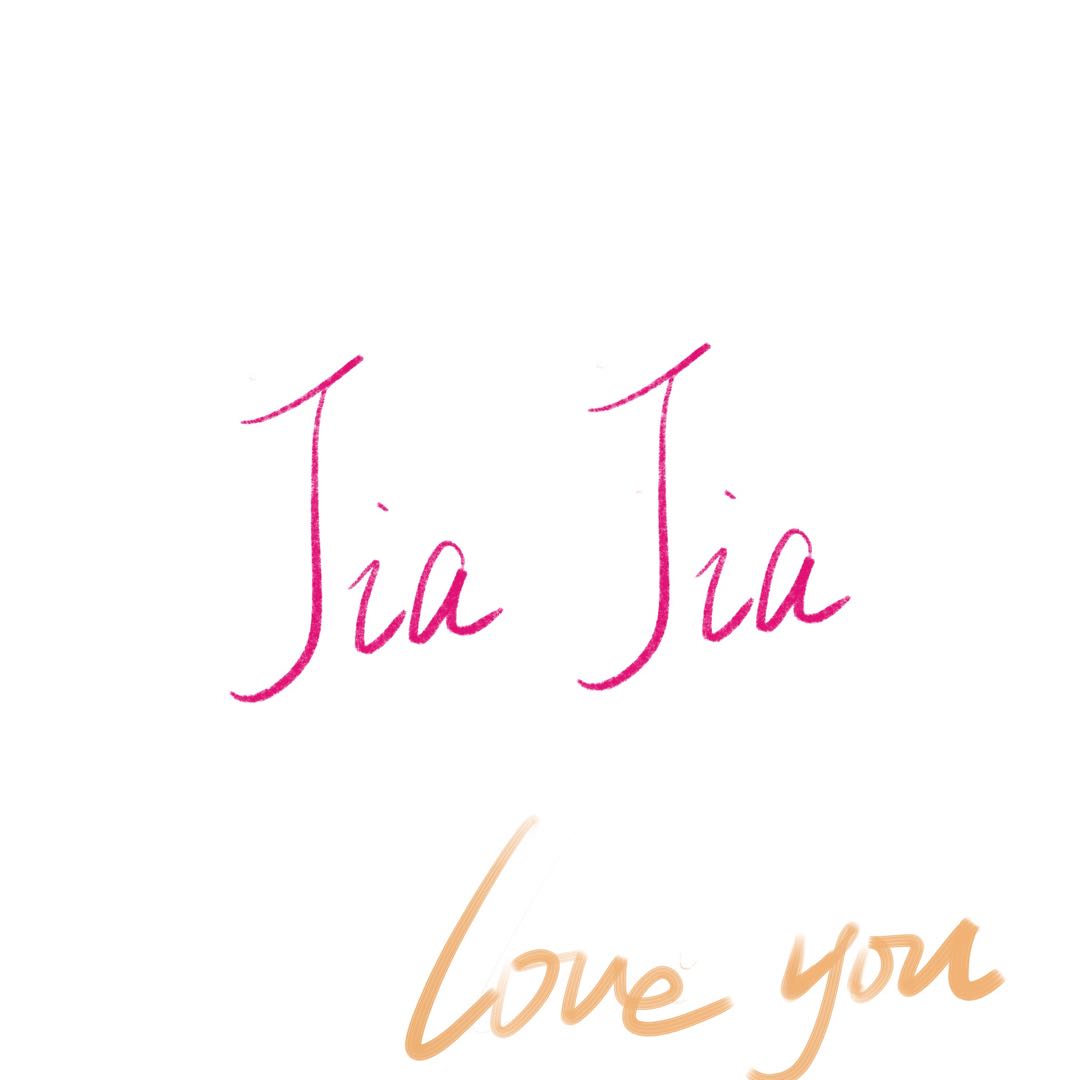 Jia Jia
love you